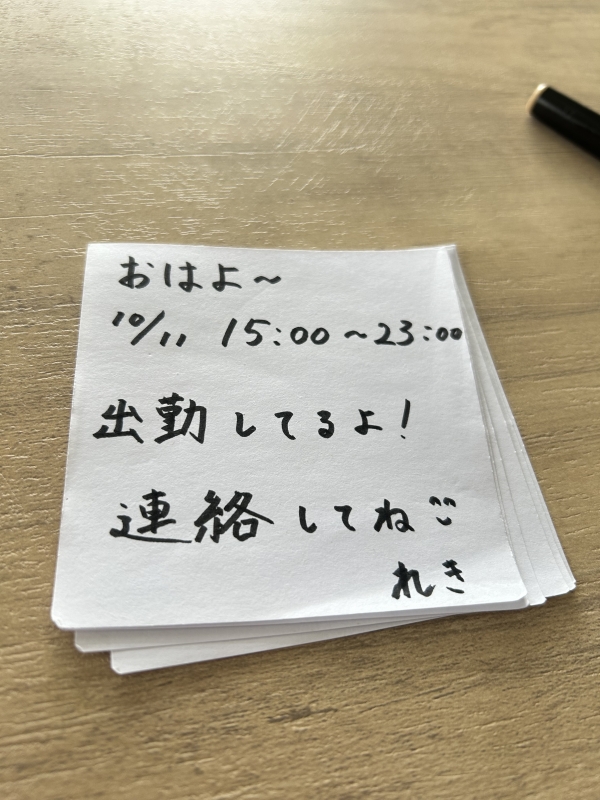 おはよ～
10/11 15:00～23:00
出勤してるよ!
連絡してね
れき